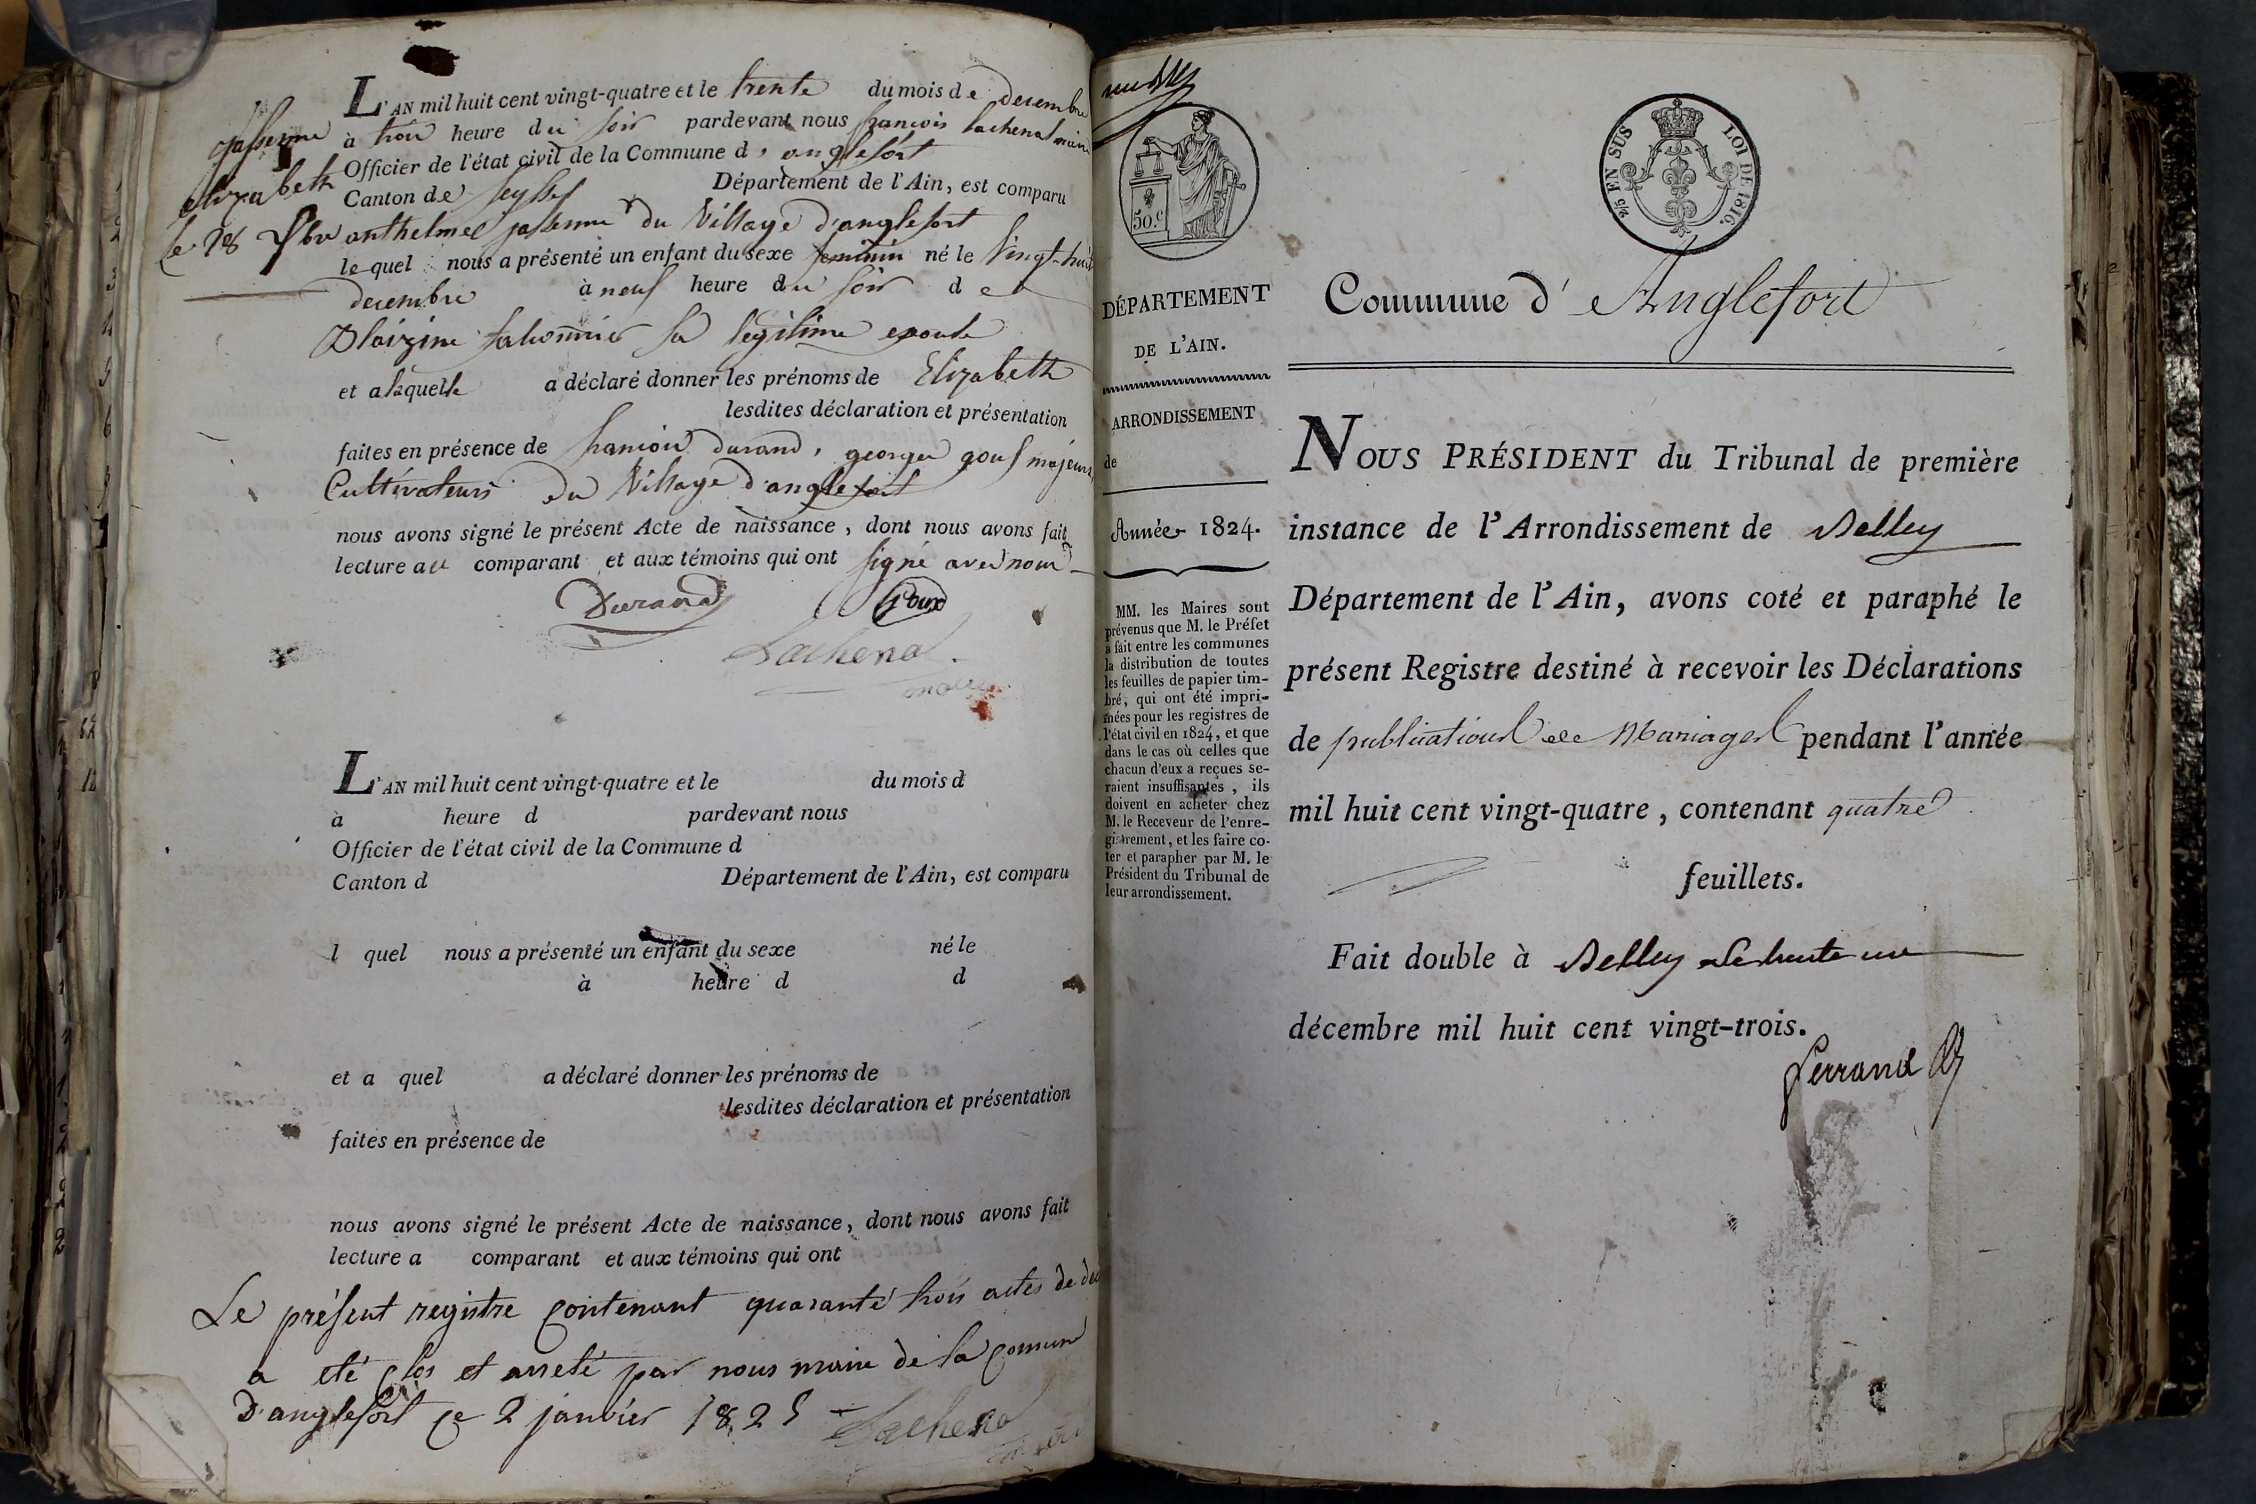 L'AN mil huit cent vingt-quatre et le trente du mois de decembre
à trois heure du soir pardevant nous françois Lachenal maire
Officier de l'état civil de la Commune d'anglefort
Canton de Seyssel Département de l'Ain, est comparu
anthelme du Village d'anglefort
lequel nous a présenté un enfant du sexe feminin né le Vingt-huit
decembre à neuf heure du soir de
sa legitime epouse
et a laquelle a déclaré donner les prénoms de Elizabeth
lesdites déclaration et présentation
faites en présence de francois durand, george goux majeurs
Cultivateurs du Village d'anglefort
nous avons signé le présent Acte de naissance, dont nous avons fait
lecture au comparant et aux témoins qui ont signé avec nous
elizabeth
le 28
Durand Goux
Lachenal
maire
L'AN mil huit cent vingt-quatre et le du mois d
à heure d pardevant nous
Officier de l'état civil de la Commune d
Canton d Département de l'Ain, est comparu
l quel nous a présenté un enfant du sexe né le
à heure d d
et a quel a déclaré donner les prénoms de
lesdites déclaration et présentation
faites en présence de
nous avons signé le présent Acte de naissance, dont nous avons fait
lecture a comparant et aux témoins qui ont
Le présent registre contenant quarante trois actes de
a eté clos et arreté par nous maire de la comune
D'anglefort ce 2 janvier 1825
Lachenal
maire
50.c
2/5 EN SUS LOI DE 1816.
DÉPARTEMENT
DE L'AIN.
ARRONDISSEMENT
de
Année 1824.
MM. les Maires sont
prévenus que M. le Préfet
a fait entre les communes
la distribution de toutes
les feuilles de papier tim-
bré, qui ont été impri-
mées pour les registres de
l'état civil en 1824, et que
dans le cas où celles que
chacun d'eux a reçues se-
raient insuffisantes, ils
doivent en acheter chez
M. le Receveur de l'enre-
gistrement, et les faire co-
ter et parapher par M. le
Président du Tribunal de
leur arrondissement.
Commune d'Anglefort
NOUS PRÉSIDENT du Tribunal de première
instance de l'Arrondissement de Belley
Département de l'Ain, avons coté et paraphé le
présent Registre destiné à recevoir les Déclarations
de publications de Mariages pendant l'année
mil huit cent vingt-quatre, contenant quatre
feuillets.
Fait double à Belley le trente un
décembre mil huit cent vingt-trois.
Ferrand